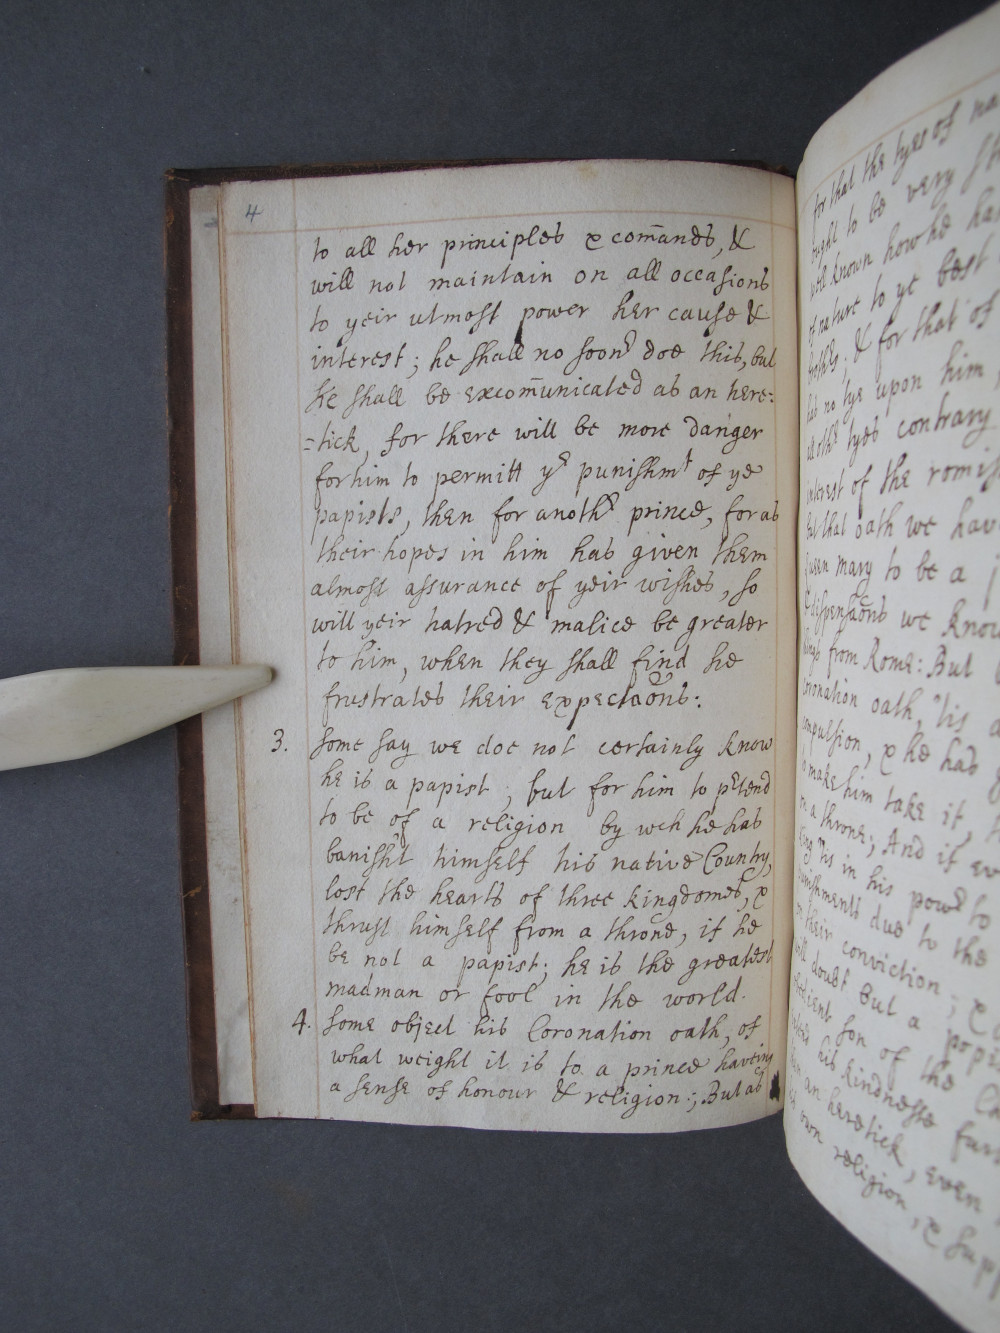 4
to all her principles & com̄ands, &
will not maintain on all occasions
to yeir utmost power her cause &
interest; he shall no soonr doe this, but
he shall be excom̄unicated as an here=
=tick, for there will be more danger
for him to permitt ye punishmt of ye
papists, then for anothr prince, for as
their hopes in him has given them
almost assurance of yeir wishes, so
will yeir hatred & malice be greater
to him, when they shall find he
frustrates their expectaōns:
3. Some say we doe not certainly know
he is a papist, but for him to pretend
to be of a religion by wch he has
banisht himself his native Country,
lost the hearts of three kingdomes, &
thrust himself from a throne, if he
be not a papist; he is the greatest
madman or fool in the world.
4. Some object his Coronation oath, of
what weight it is to a prince having
a sense of honour & religion:; But as
for that the tyes of na
ought to be very st
well known how he ha
of nature to ye best
brothrs; & for that of
has no tye upon him
all othr tyes contrary
interest of the romis
But that oath we hav
Queen Mary to be a p
& dispensaōns we know
from Rome: But
Coronation oath, 'tis a
compulsion, & he had
to make him take it,
on a throne; And if ev
'tis in his powr to
punishments due to the
on their conviction, &
will doubt But a popi
obedient son of the C
his kindnesse furt
then an heretick, even
his own religion, & supp